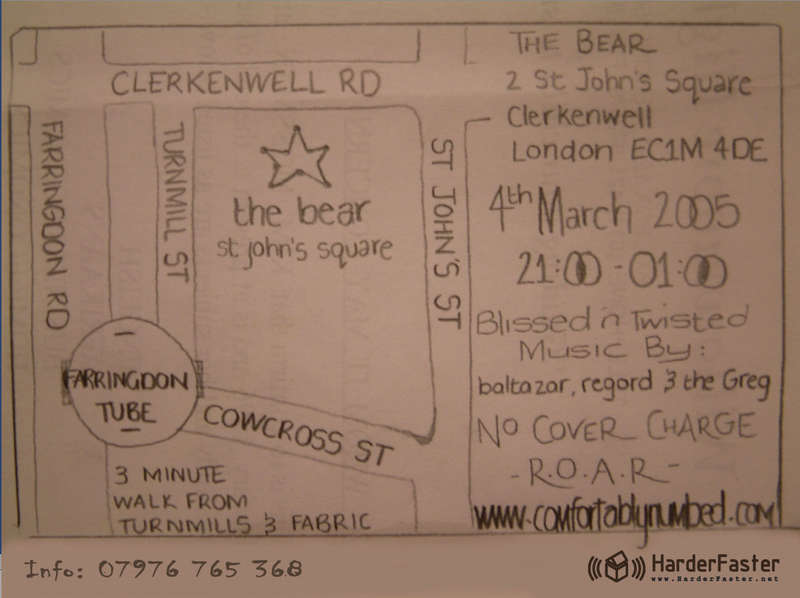 CLERKENWELL RD
FARRINGDON RD
TURNMILL ST
the bear
st john's square
ST JOHN'S ST
FARRINGDON
TUBE
COWCROSS ST
3 MINUTE
WALK FROM
TURNMILLS & FABRIC
THE BEAR
2 St John's Square
Clerkenwell
London EC1M 4DE
4th March 2005
21:00 - 01:00
Blissed 'n Twisted
Music By:
baltazar, regord & the Greg
No COVER CHARGE
- R.O.A.R -
www.comfortablynumbed.com
Info: 07976 765 368
HarderFaster
www.HarderFaster.net